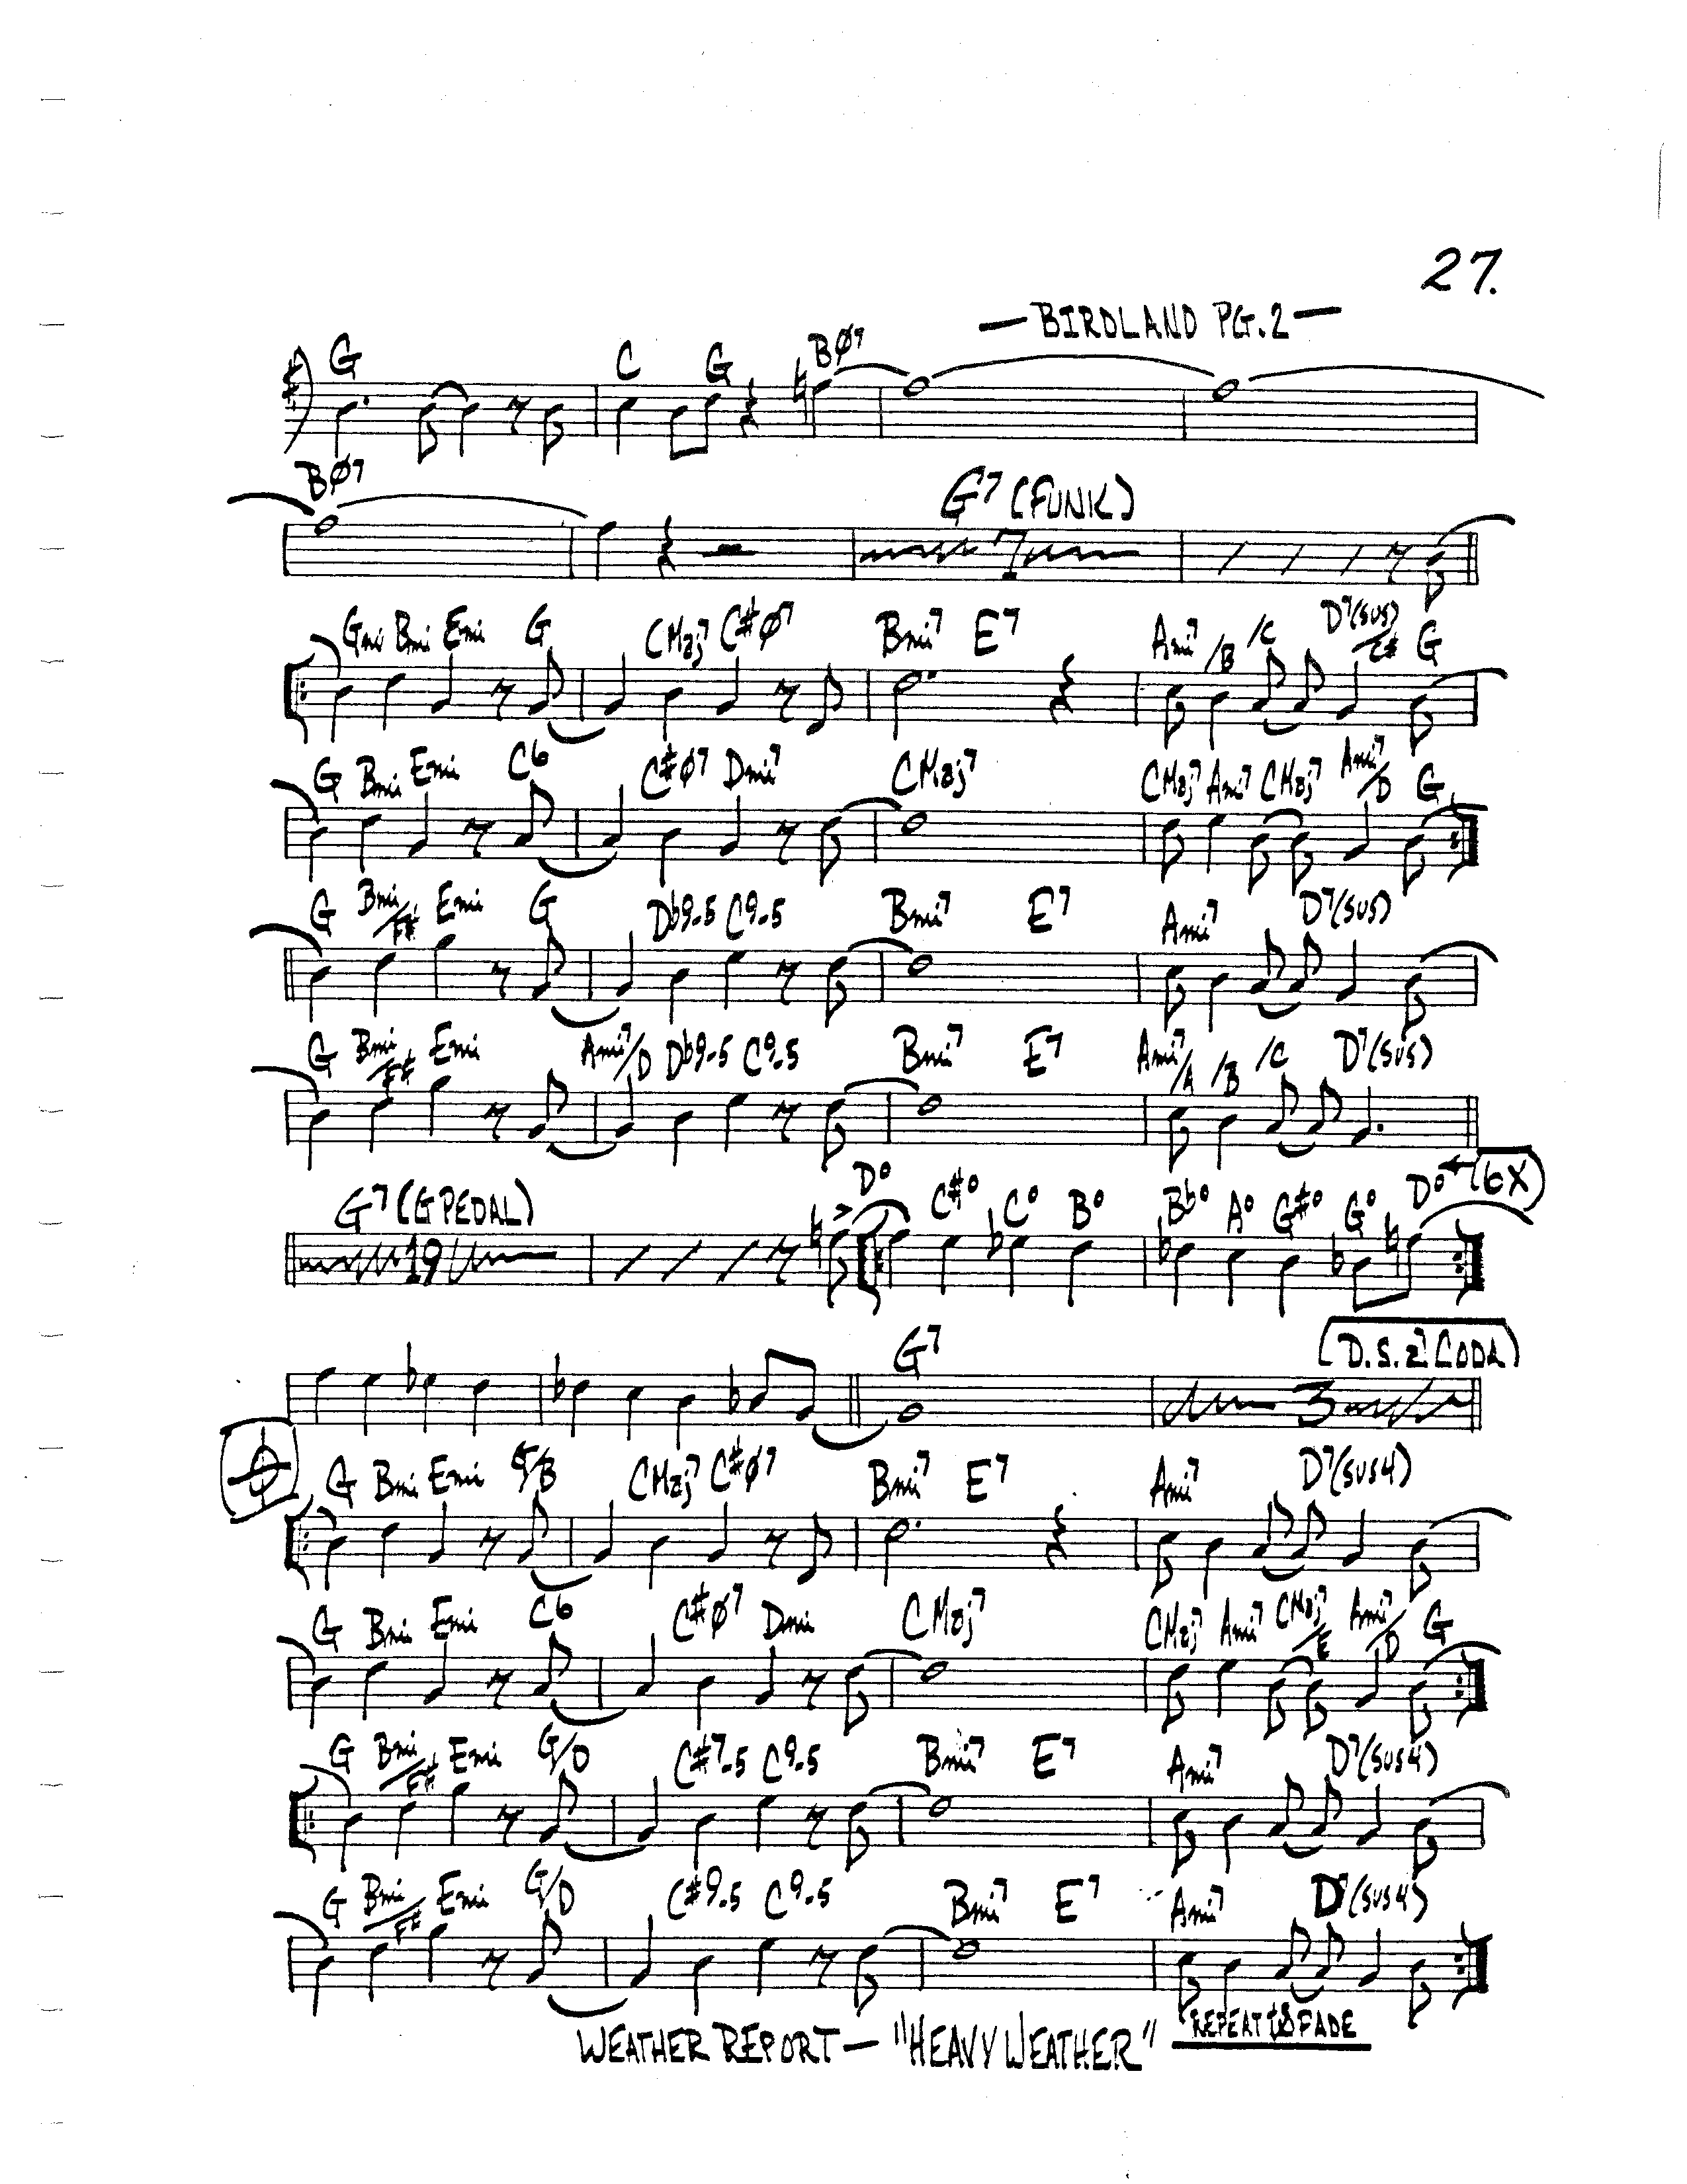 27.
— BIRDLAND PG.2 —
G C G BØ7
BØ7 G7 (FUNK)
7
Gmi Bmi Emi G CMaj7 C#Ø7 Bmi7 E7 Ami7 /B /C D7(SUS) /C# G
G Bmi Emi C6 C#Ø7 Dmi7 CMaj7 CMaj7 Ami7 CMaj7 Ami7/D G
G Bmi/F# Emi G Db9-5 C9-5 Bmi7 E7 Ami7 D7(SUS)
G Bmi/F# Emi Ami7/D Db9-5 C9-5 Bmi7 E7 Ami7 /A /B /C D7(SUS)
G7 (G PEDAL) D° C#° C° B° Bb° A° G#° G° D° (6X)
19
G7 (D.S. 2 CODA)
3
G Bmi Emi G/B CMaj7 C#Ø7 Bmi7 E7 Ami7 D7(SUS4)
G Bmi Emi C6 C#Ø7 Dmi CMaj7 CMaj7 Ami7 CMaj7/E Ami7/D G
G Bmi/F# Emi G/D C#7-5 C9-5 Bmi7 E7 Ami7 D7(SUS4)
G Bmi/F# Emi G/D C#9-5 C9-5 Bmi7 E7 Ami7 D7(SUS4)
WEATHER REPORT — "HEAVY WEATHER" REPEAT to FADE